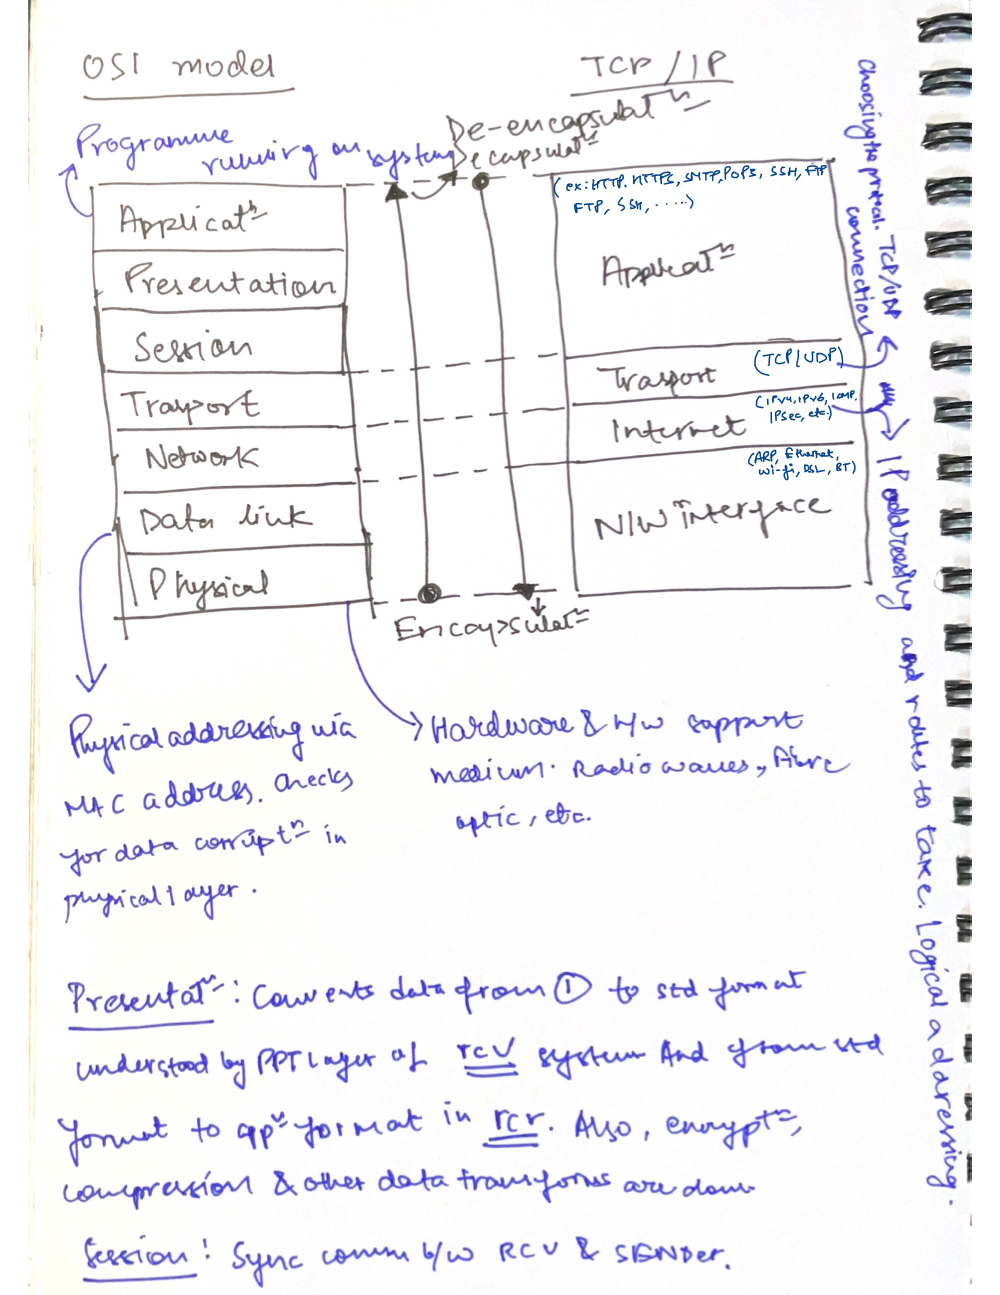 OSI model
TCP/IP
Programme
running on system
De-encapsulatⁿ
Decapsulatⁿ
Applicatⁿ
Presentation
Session
Trasport
Network
Data link
Physical
(ex: HTTP, HTTPS, SMTP, POP3, SSH, FTP
FTP, SSH, .....)
Applicatⁿ
Trasport (TCP/UDP)
Internet
(IPv4, IPv6, ICMP,
IPSec, etc)
(ARP, Ethernet,
Wi-fi, DSL, BT)
N/W interface
Encapsulatⁿ
Choosing the protocol. TCP/UDP
connection
IP addressing and routes to take. Logical addressing.
Physical addressing via
MAC address. Checks
for data corruptⁿ in
physical layer.
Hardware & H/W support
medium. Radio waves, Fibre
optic, etc.
Presentatⁿ: Converts data from ① to std format
understood by PPT layer of rcv system And from std
format to appⁿ format in rcr. Also, encryptⁿ,
compression & other data transforms are done
Session: Sync comm b/w RCV & SENDer.